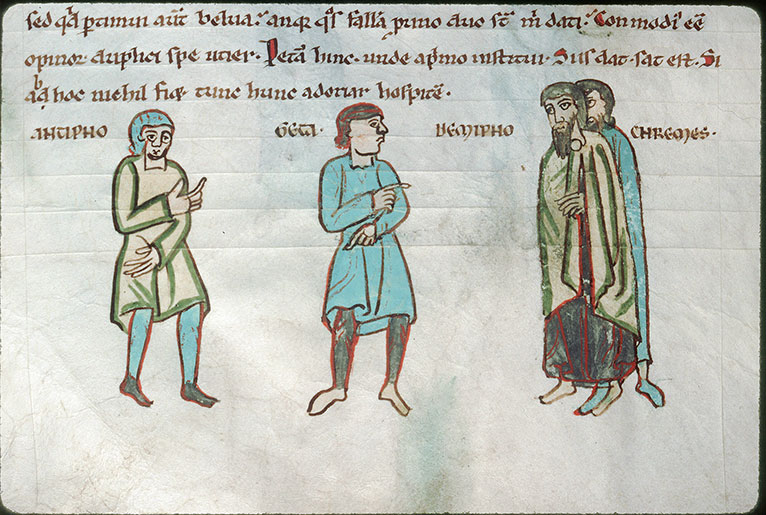 sed qa ptimui aut belua. anq; qs fallā p uno duo st̄ m̄ dati. Commodi' eē
opinor duplici spe utier. Petā hinc. unde apmo institui. Sus daat. sat est. Si
hoc nichil tunc hunc adoriar hospitē.
ANTIPHO GETA. DEMIPHO CHREMES.